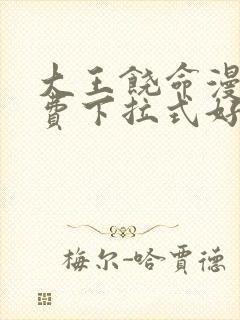 大王饶命漫
费下拉式好
梅尔-哈贾德